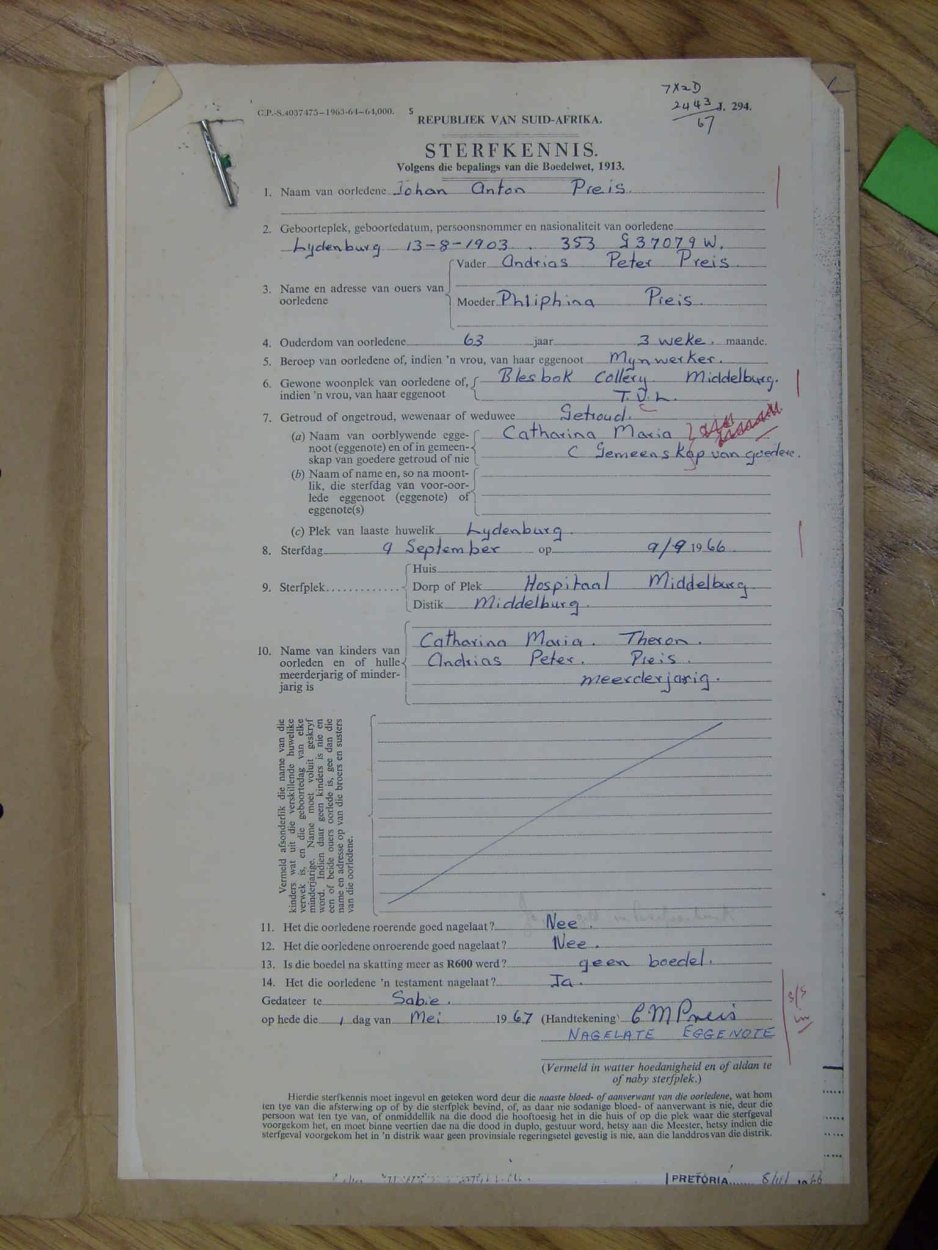 7X2D
C.P.-S.4037475—1963-64—64,000. 5
2443 J. 294.
67
REPUBLIEK VAN SUID-AFRIKA.
STERFKENNIS.
Volgens die bepalings van die Boedelwet, 1913.
1. Naam van oorledene Johan Anton Preis.
2. Geboorteplek, geboortedatum, persoonsnommer en nasionaliteit van oorledene
Lydenburg 13-8-1903. 353 937079 W.
Vader Andrias Peter Preis
3. Name en adresse van ouers van
oorledene
Moeder Phliphina Preis
4. Ouderdom van oorledene 63 jaar 3 weke. maande.
5. Beroep van oorledene of, indien 'n vrou, van haar eggenoot Mynwerker.
6. Gewone woonplek van oorledene of, Blesbok Collery Middelburg.
indien 'n vrou, van haar eggenoot T.V.L.
7. Getroud of ongetroud, wewenaar of weduwee Getroud.
(a) Naam van oorblywende egge- Catharina Maria
noot (eggenote) en of in gemeen- C Gemeenskap van goedere.
skap van goedere getroud of nie
(b) Naam of name en, so na moont-
lik, die sterfdag van voor-oor-
lede eggenoot (eggenote) of
eggenote(s)
(c) Plek van laaste huwelik Lydenburg
8. Sterfdag 9 September op 9/9 1966
Huis
9. Sterfplek Dorp of Plek Hospitaal Middelburg
Distik Middelburg.
Catharina Maria. Theron.
10. Name van kinders van
oorleden en of hulle Andrias Peter. Preis.
meerderjarig of minder- meerderjarig.
jarig is
Vermeld afsonderlik die name van die
kinders wat uit die verskillende huwelike
verwek is, en die geboortedag van elke
minderjarige. Name moet voluit geskryf
word. Indien daar geen kinders is nie en
een of beide ouers oorlede is, gee dan die
name en adresse op van die broers en susters
van die oorledene.
11. Het die oorledene roerende goed nagelaat? Nee.
12. Het die oorledene onroerende goed nagelaat? Nee.
13. Is die boedel na skatting meer as R600 werd? geen boedel.
14. Het die oorledene 'n testament nagelaat? Ja.
Gedateer te Sabie.
op hede die 1 dag van Mei 1967 (Handtekening) C M Preis
NAGELATE EGGENOTE
(Vermeld in watter hoedanigheid en of aldan te
of naby sterfplek.)
Hierdie sterfkennis moet ingevul en geteken word deur die naaste bloed- of aanverwant van die oorledene, wat hom
ten tye van die afsterwing op of by die sterfplek bevind, of, as daar nie sodanige bloed- of aanverwant is nie, deur die
persoon wat ten tye van, of onmiddellik na die dood die hooftoesig het in die huis of op die plek waar die sterfgeval
voorgekom het, en moet binne veertien dae na die dood in duplo, gestuur word, hetsy aan die Meester, hetsy indien die
sterfgeval voorgekom het in 'n distrik waar geen provinsiale regeringsetel gevestig is nie, aan die landdros van die distrik.
PRETORIA